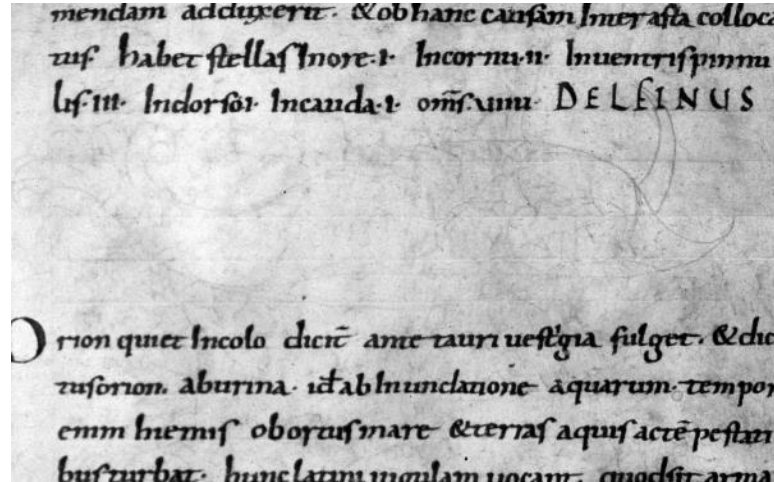 mendam adduxerit. & ob hanc causam Inter astra colloca
tus habet stellas In ore .i. In cornu .ii. In uentris pinnu
lis .iii. In dorso .i. In cauda .i. om̅s. uiiii DELFINUS
Orion qui et Incolo dicit̅ ante tauri uestigia fulget. & dic
tus orion. ab urina. id̅ ab Inundatione aquarum. tempor
enim hiemis obortus mare & terras aquis ac te̅pestati
bus turbat. hunc latini iugulam uocant. quod sit arma